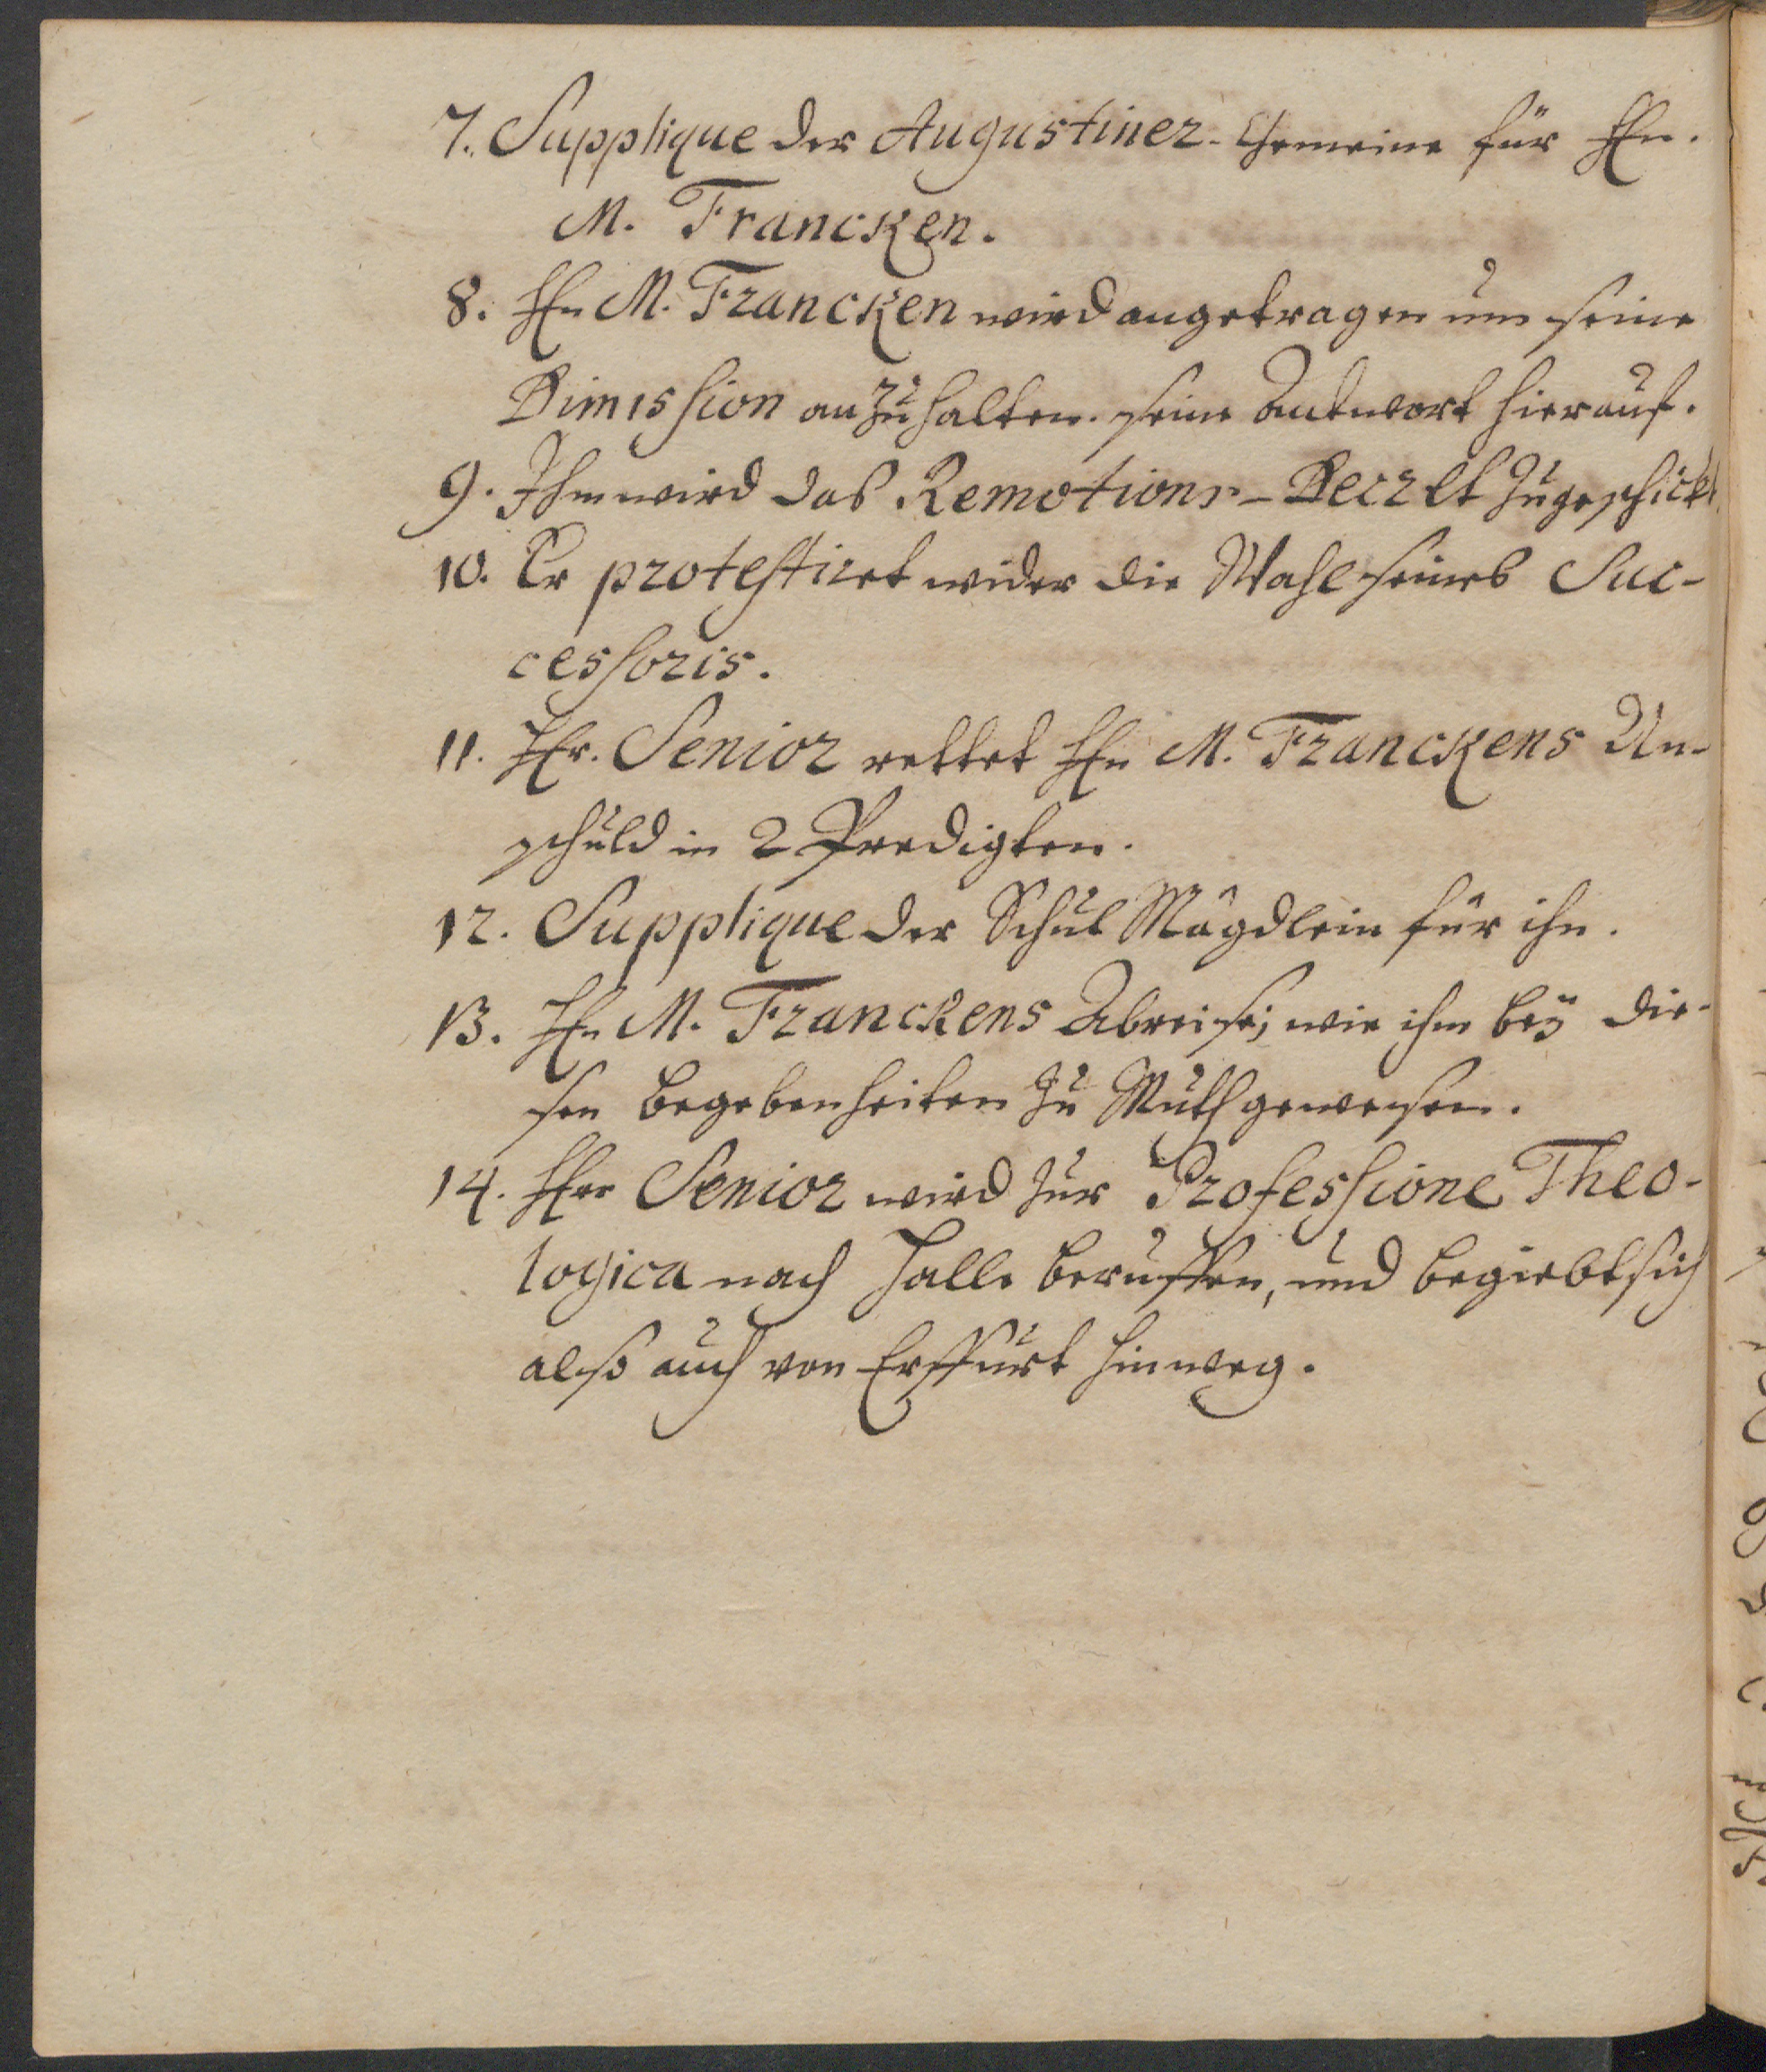 7. Supplique der Augustiner-Gemeine für Hn.
M. Francken.
8. Hn M. Francken wird angetragen um seine
Dimission anzuhalten. seine Antwort hierauf.
9. Ihm wird das Remotions-Decret zugeschickt.
10. Er protestiret wider die Wahl seines Suc-
cessoris.
11. Hr. Senior rettet Hn M. Franckens Un-
schuld in 2 Predigten.
12. Supplique der Schul Mägdlein für ihn.
13. Hn M. Franckens Abreise; wie ihm beÿ die-
sen Begebenheiten zu Muth gewesen.
14. Herr Senior wird zur Professione Theo-
logica nach Halle beruffen, und begiebt sich
also auch von Erffurt hinweg.